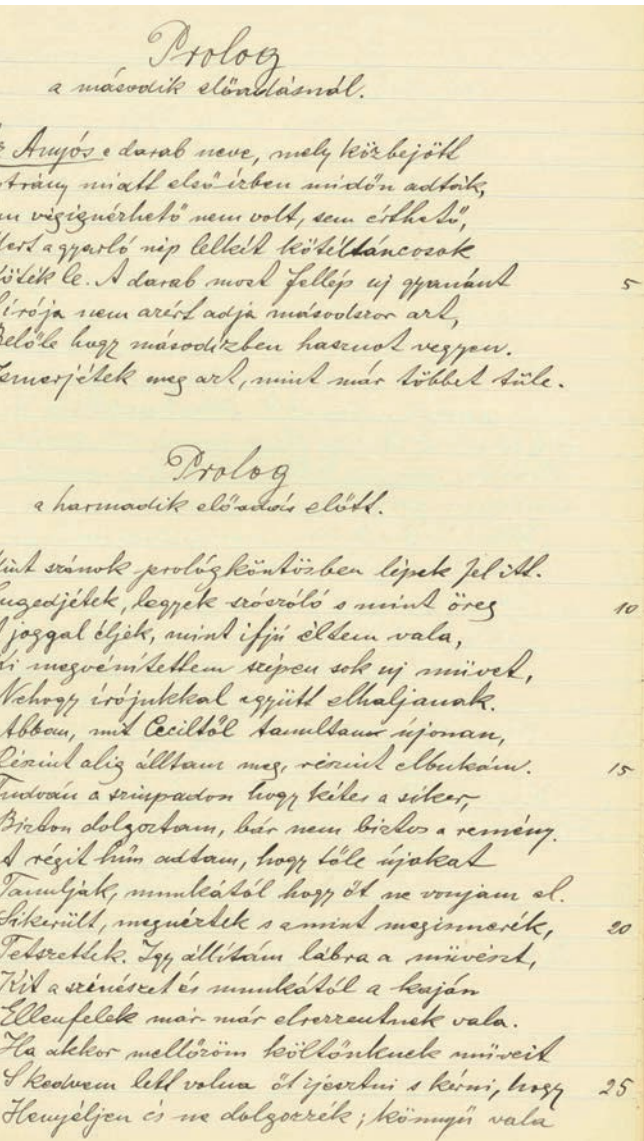 Prolog
a második előadásnál.
Anyós e darab neve, mely közbejött
miatt első ízben midőn adták,
végignézhető nem volt, sem érthető,
agyarló nép lelkét kötéltáncosok
le. A darab most fellép uj gyanánt
irója nem azért adja másodszor azt,
Belőle hogy másodízben hasznot vegyen.
Ismerjétek meg azt, mint már többet tüle. 5
Prolog
a harmadik előadás előtt.
szónok prológköntösben lépek fel itt.
legyek szószóló s mint öreg 10
joggal éljek, mint ifjú éltem vala,
megvénítettem szépen sok uj müvet,
Nehogy írójukkal együtt elhaljanak.
Abban, mit Ceciltől tanultam újonan,
Részint alig álltam meg, részint elbukám. 15
Tudván a szinpadon hogy kétes a siker,
Bizton dolgoztam, bár nem biztos a remény.
A régit hűn adtam, hogy tőle újakat
Tanuljak, munkától hogy őt ne vonjam el.
Sikerült, megnézték s amint megismerék, 20
Tetszettek. Igy állítám lábra a müvészt,
Kit a színészet és munkától a kaján
Ellenfelek már-már elrezzentnek vala.
Ha akkor mellőzöm költőnknek müveit
S kedvem lett volna őt ijesztni s kérni, hogy 25
Henyéljen és ne dolgozzék; könnyű vala